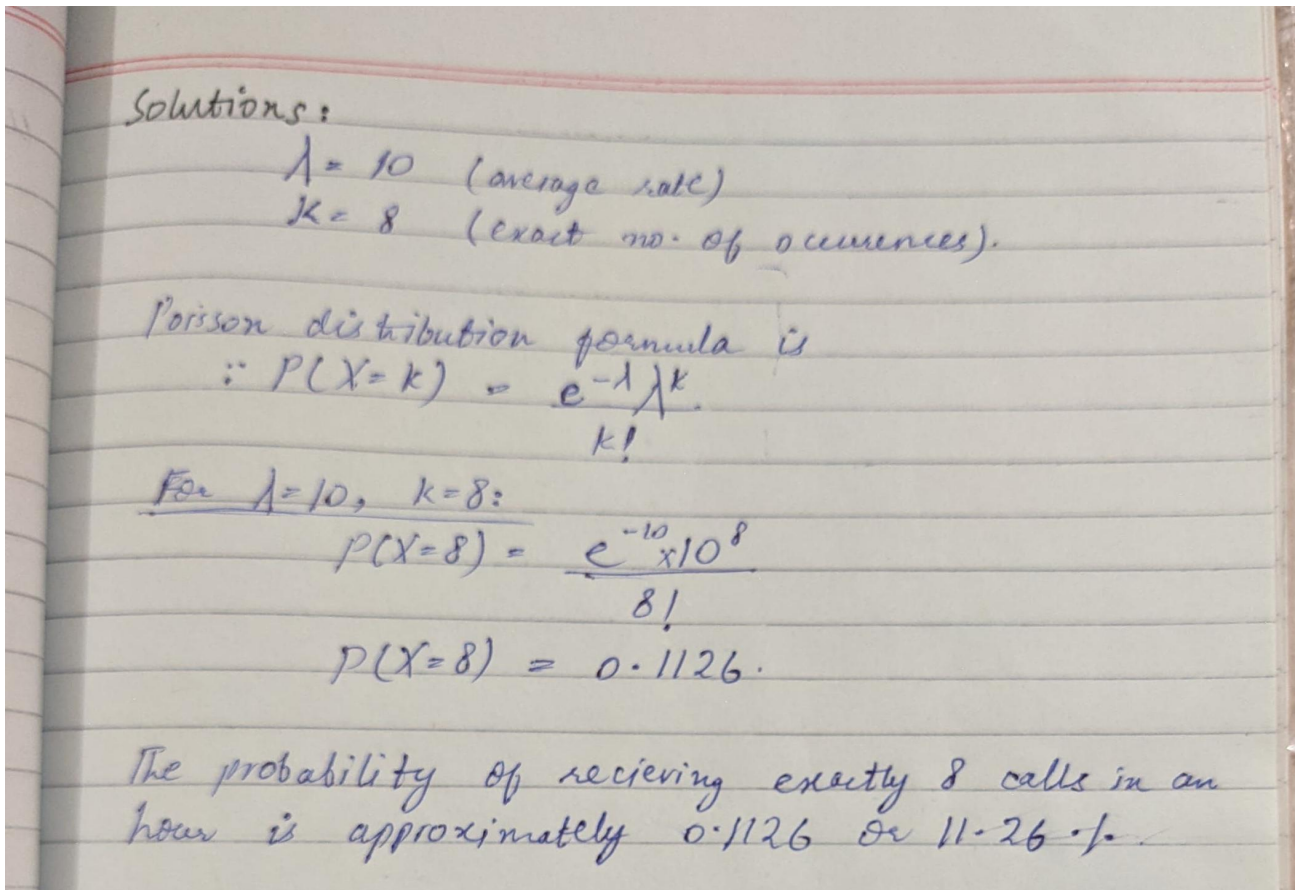 Solutions:
λ = 10 (average rate)
K = 8 (exact no. of ocurrences).
Poisson distribution formula is
∵ P(X=k) = e^-λ λ^k
k!
For λ=10, k=8:
P(X=8) = e^-10 x10^8
8!
P(X=8) = 0.1126.
The probability of recieving exactly 8 calls in an
hour is approximately 0.1126 or 11.26 %.